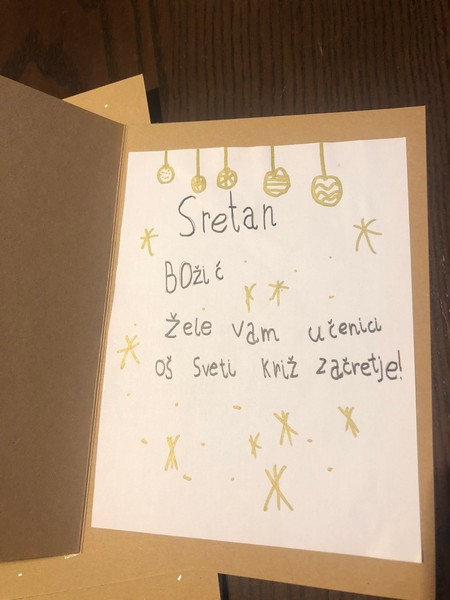 Sretan
BOžić
žele vam učenici
oš Sveti Križ začretje!